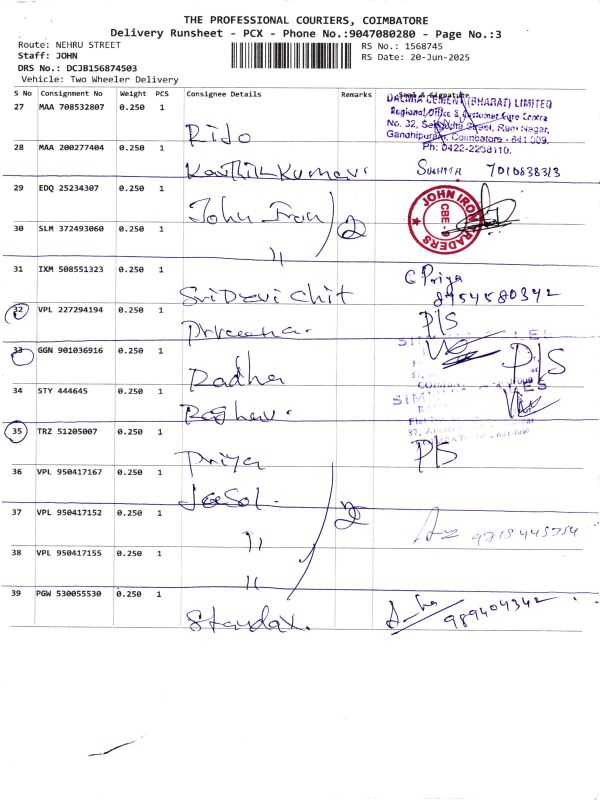 THE PROFESSIONAL COURIERS, COIMBATORE
Delivery Runsheet - PCX - Phone No.:9047080280 - Page No.:3
Route: NEHRU STREET
RS No.: 1568745
Staff: JOHN
RS Date: 20-Jun-2025
DRS No.: DCJB156874503
Vehicle: Two Wheeler Delivery
S No Consignment No Weight PCS Consignee Details Remarks Seal & Signature
27 MAA 708532807 0.250 1
DALMIA CEMENT (BHARAT) LIMITED
Regional Office & Customer Care Centre
No. 32, Street, Ram Nagar,
Gandhipuram, Coimbatore - 641 009.
Ph: 0422-2238110.
Rido
28 MAA 200277404 0.250 1
Karthik Kumar.
29 EDQ 25234307 0.250 1
John Iron
2
JOHN IRON TRADERS
CBE-9
30 SLM 372493060 0.250 1
"
31 IXM 508551323 0.250 1
Sri Devi Chit
Priya
8954580342
32 VPL 227294194 0.250 1
Praveena.
P/S
33 GGN 901036916 0.250 1
Radha
P/S
34 STY 444645 0.250 1
Raghav.
35 TRZ 51205007 0.250 1
Priya
P/S
36 VPL 950417167 0.250 1
37 VPL 950417152 0.250 1
"
2
9715445754
38 VPL 950417155 0.250 1
"
39 PGW 530055530 0.250 1
Standax.
989404342